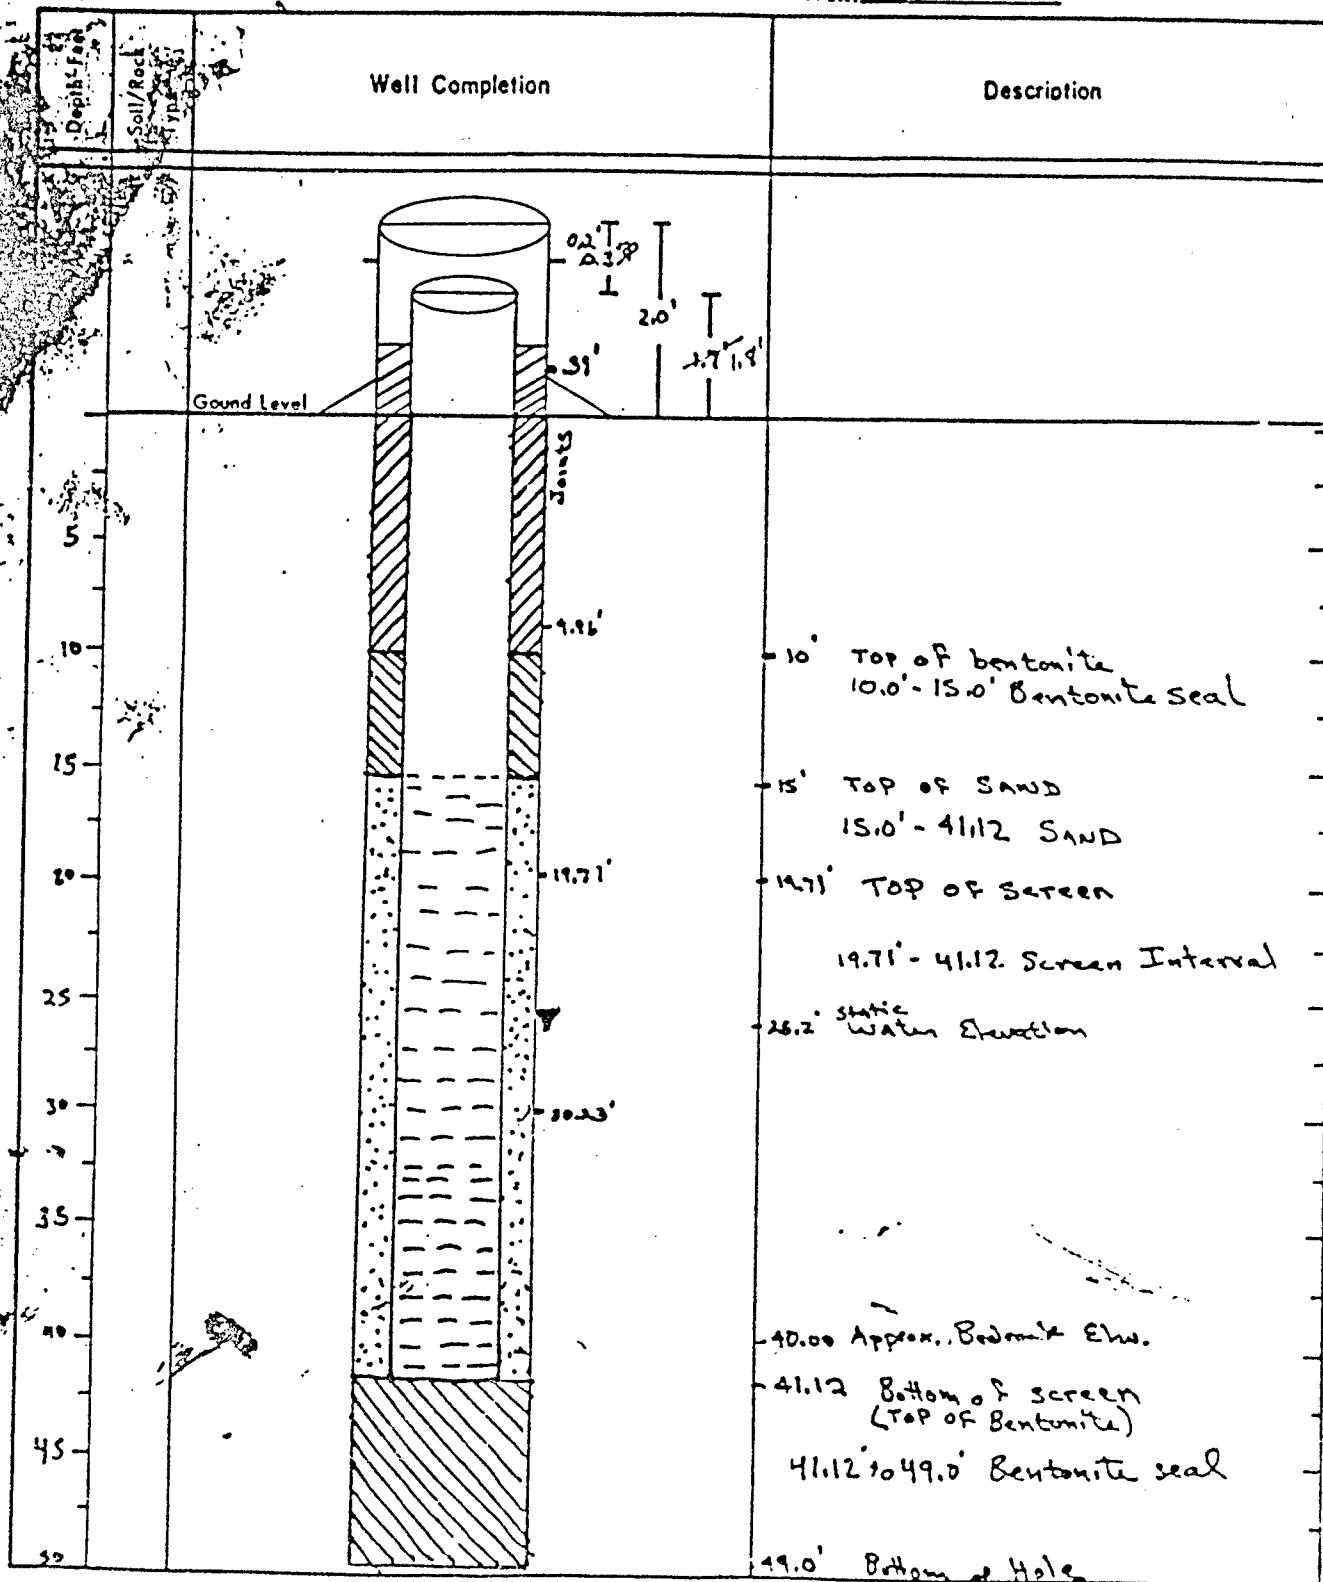 Depth-Feet
Soil/Rock Type
Well Completion
Description
0.2'
0.3'
2.0'
1.7' 1.8'
.39'
Gound Level
Joints
5
9.96'
10
10' TOP of bentonite
10.0'-15.0' Bentonite seal
15
15' TOP OF SAND
15.0'-41.12 SAND
20
19.71'
19.71' TOP OF Screen
19.71'-41.12 Screen Interval
25
static
26.2' Water Elevation
30
30.23'
35
40
40.00 Approx. Bedrock Elev.
41.12 Bottom of screen
(TOP OF Bentonite)
45
41.12' to 49.0' Bentonite seal
50
49.0' Bottom of Hole